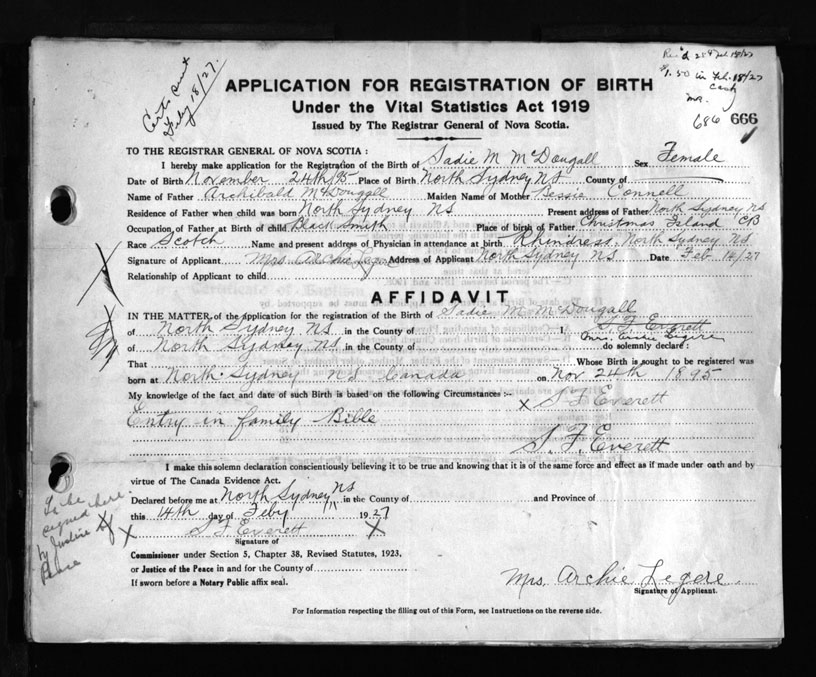 Rec'd Feb 18/27
$1.50 in Feb. 18/27
Cash
Certs sent
Feby 18/27.
686 666
APPLICATION FOR REGISTRATION OF BIRTH
Under the Vital Statistics Act 1919
Issued by The Registrar General of Nova Scotia.
TO THE REGISTRAR GENERAL OF NOVA SCOTIA:
I hereby make application for the Registration of the Birth of Sadie M McDougall Sex Female
Date of Birth November 24th/95 Place of Birth North Sydney NS County of
Name of Father Archibald McDougall Maiden Name of Mother Bessie Connell
Residence of Father when child was born North Sydney NS Present address of Father North Sydney NS
Occupation of Father at Birth of child Black Smith Place of birth of Father Christmas Island CB
Race Scotch Name and present address of Physician in attendance at birth Rhindress, North Sydney NS
Signature of Applicant Mrs Archie Legere Address of Applicant North Sydney NS Date Feb 14/27
Relationship of Applicant to child
AFFIDAVIT
IN THE MATTER of the application for the registration of the Birth of Sadie M McDougall
of North Sydney NS in the County of I S. F. Everett
Mrs. Archie Legere
of North Sydney NS in the County of do solemnly declare:
That Whose Birth is sought to be registered was
born at North Sydney NS Canada on Nov 24th 1895
My knowledge of the fact and date of such Birth is based on the following Circumstances:-
X S F Everett
Entry in family Bible
S. F. Everett
I make this solemn declaration conscientiously believing it to be true and knowing that it is of the same force and effect as if made under oath and by
virtue of The Canada Evidence Act.
Declared before me at North Sydney NS in the County of and Province of
this 14th day of Feby 1927
X S F Everett X
Signature of
To be
signed here
by Justice of
Peace
Commissioner under Section 5, Chapter 38, Revised Statutes, 1923,
or Justice of the Peace in and for the County of
If sworn before a Notary Public affix seal.
Mrs. Archie Legere
Signature of Applicant.
For Information respecting the filling out of this Form, see Instructions on the reverse side.